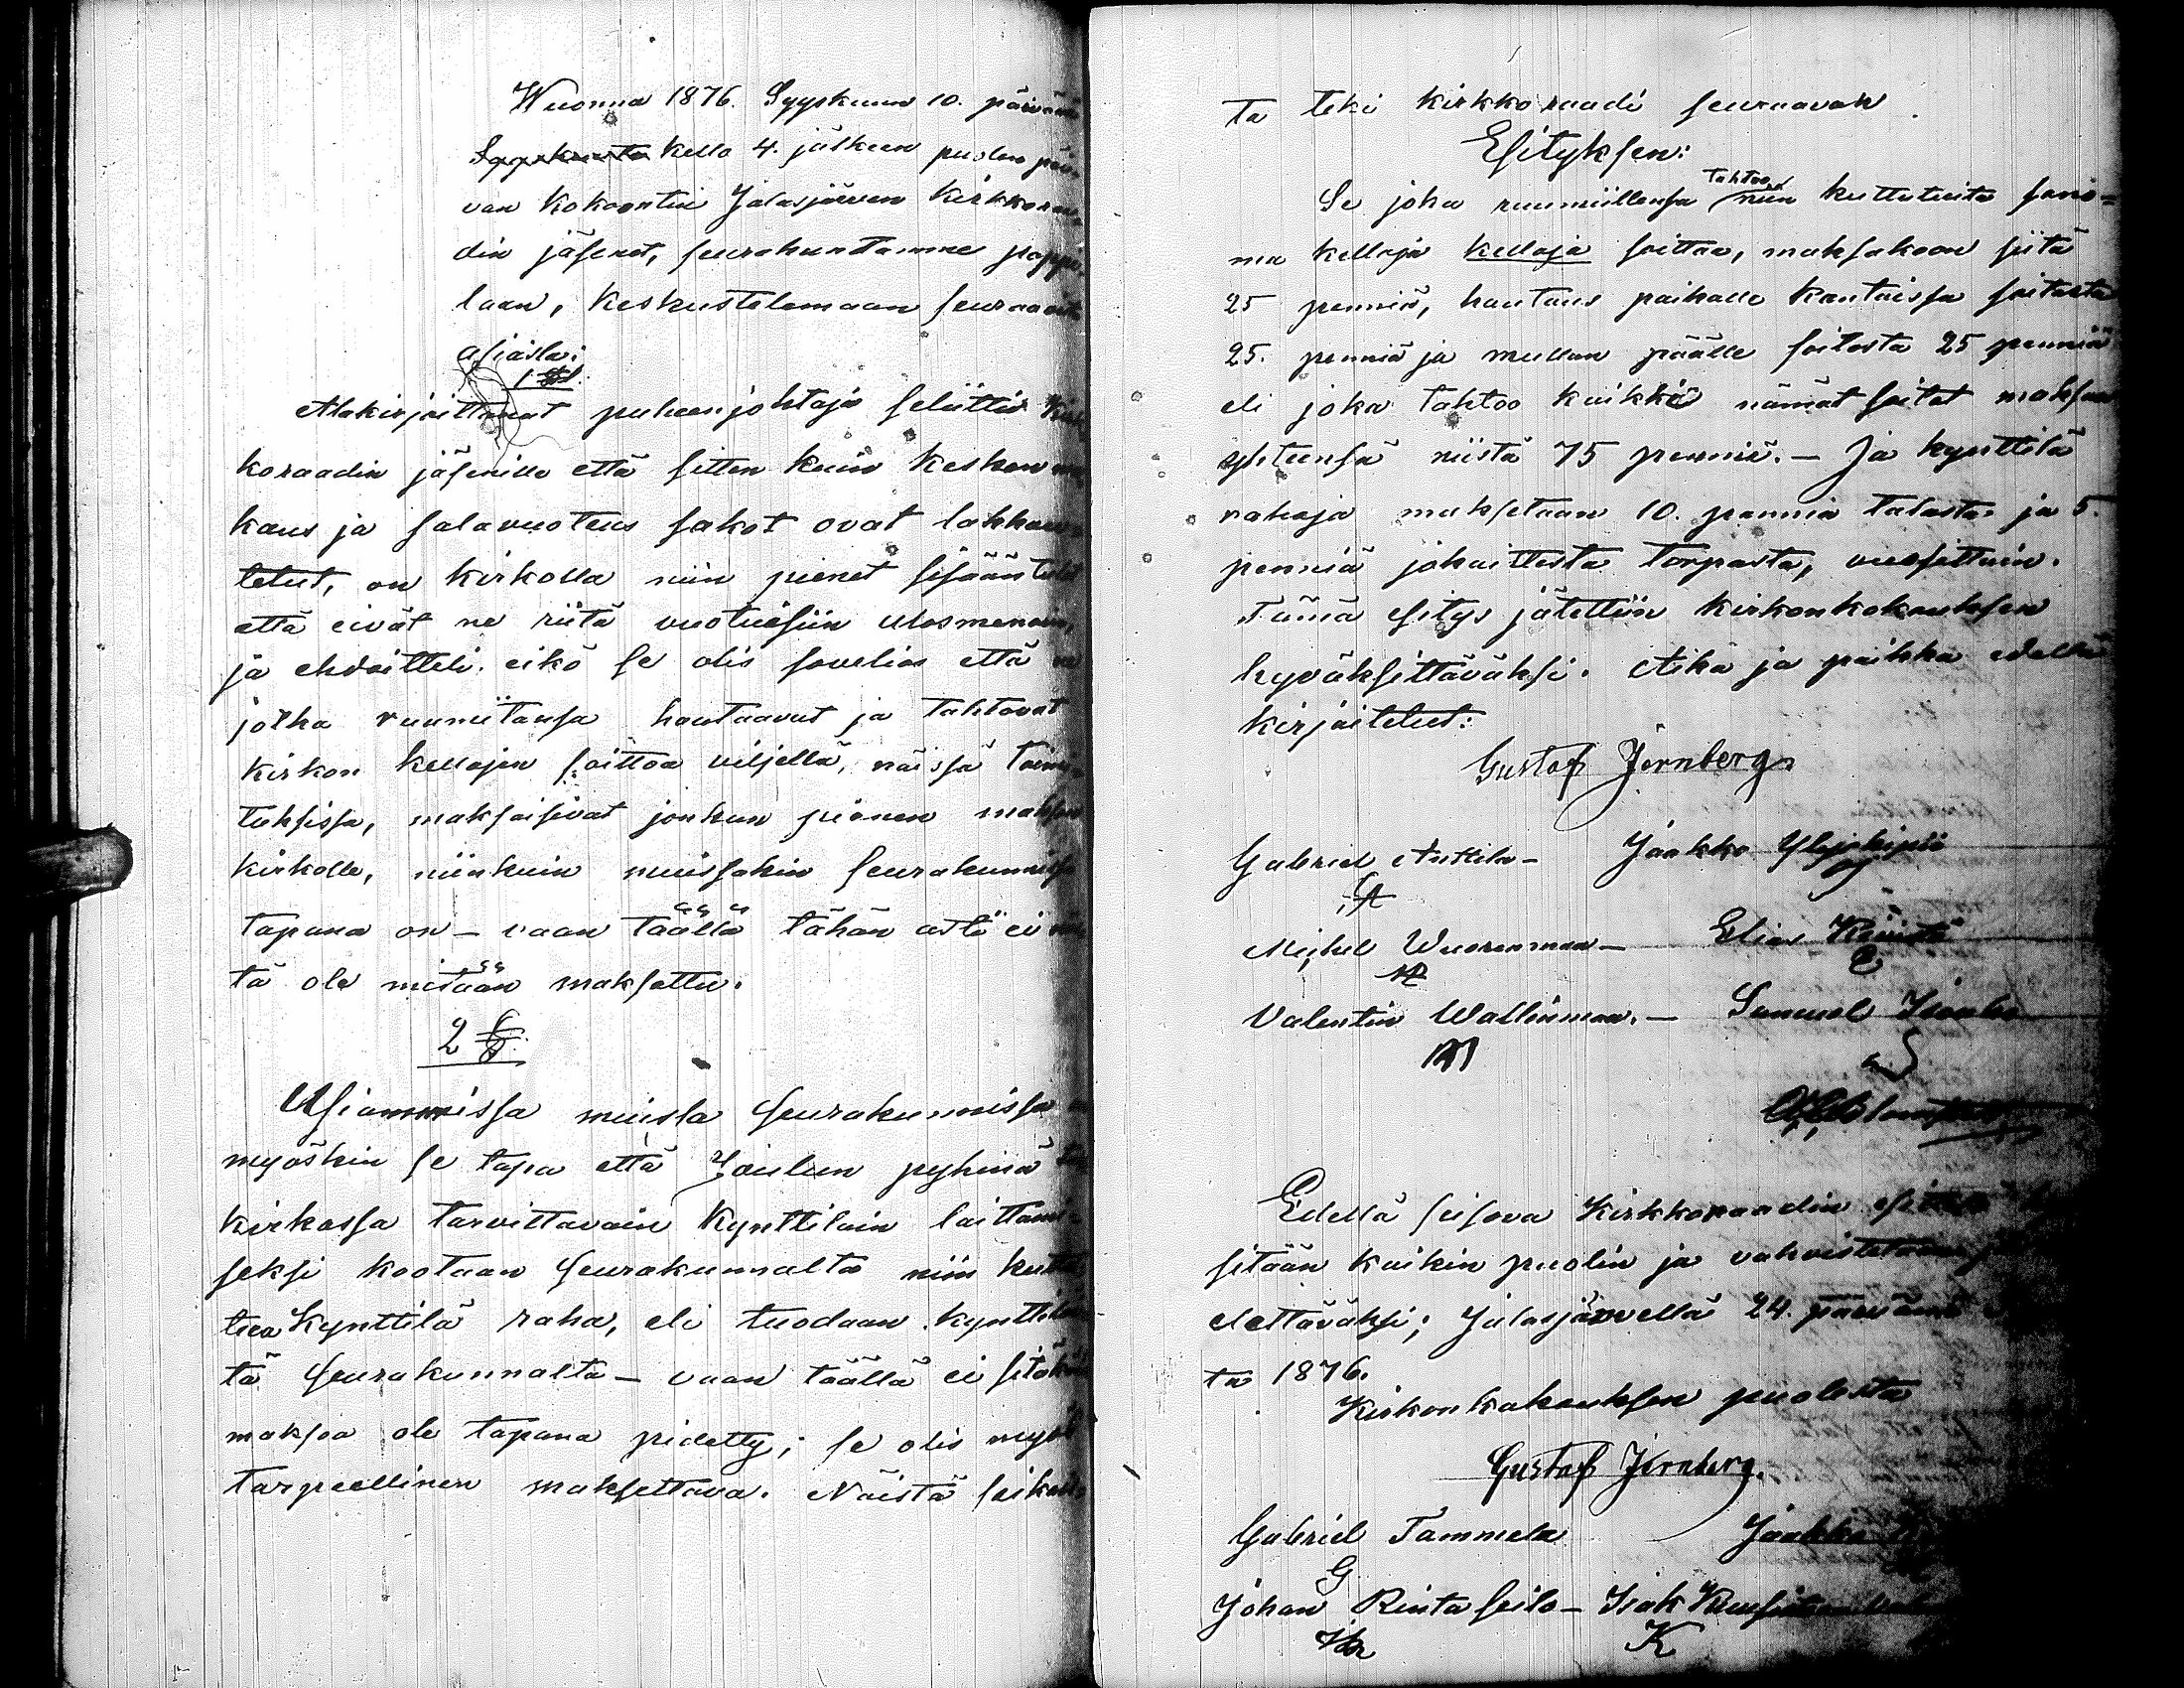 Wuonna 1876. Syyskuun 10. päivänä
Syyskuuta kello 4. jälkeen puolen päi-
vän kokoontui Jalasjärven kirkkoraa-
din jäsenet, seurakuntamme pappi-
laan, keskustelemaan seuraavista
asiaista:
1 §.
Allakirjoittanut puheenjohtaja selitti kirk-
koraadin jäsenille että sitten kuin kesken
kaus ja salavuoteus sakot ovat lakkau-
tetut, on kirkolla niin pienet sisään tulot
että eivät ne riitä vuotuisiin ulosmenoin,
ja ehdoitteli eikö se olis sovelias että ne
jotka ruumiitansa hautaavat ja tahtovat
kirkon kellojen soittoa viljellä, näissä toimi-
tuksissa, maksaisivat jonkun pienen maksun
kirkolle, niinkuin muissakin seurakunnissa
tapana on – vaan täällä tähän asti ei
tä ole mitään maksettu.
2 §.
Usiammissa muissa seurakunnissa
myöskin se tapa että Joulun pyhinä
kirkossa tarvittavain kynttiläin laittami-
seksi kootaan seurakunnalta niin kuttu
tua kynttilä raha, eli tuodaan kynttilöi
tä seurakunnalta – vaan täällä ei sitäkään
maksoa ole tapana pidetty; se olis myös
tarpeellinen maksettava. Näistä seikoi-
ta teki kirkkoraadi seuraavan
Esityksen:
Se joka ruumiillensa tahtoo niin kuttutuita sano=
ma kelloja kelloja soittaa, maksakoon siitä
25 penniä, hautaus paikalle kantaissa soitosta
25. penniä ja mullan päälle soitosta 25 penniä
eli joka tahtoo kaikki nämät soitot maksaa
yhteensä niistä 75 penniä. – Ja kynttilä
rahaja maksetaan 10. penniä talosta ja 5.
penniä jokaittesta torpasta, vuosittain.
Tämä esitys jätettiin kirkonkokouksen
hyväksittäväksi. Aika ja paikka edellä
kirjoitetut:
Gustaf Jernberg
Gabriel Anttila – Jaakko Ylijokipii
Michel Wuorenmaa – Elias
Valentin Wallinmaa. – Samuel
Edellä seisova kirkkoraadin
sitään kaikin puolin ja vahvistetaan
elettäväksi; Jalasjärvellä 24. päivänä
ta 1876.
Kirkonkokouksen puolesta
Gustaf Jernberg.
Gabriel Tammela Jaakko
G
Johan Rintaseilo – Isak
K